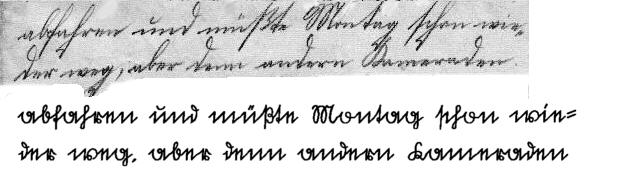 abfahren und müßte Montag schon wie-
der weg, aber denn andern Kameraden
abfahren und müßte Montag schon wie=
der weg. aber denn andern Kameraden